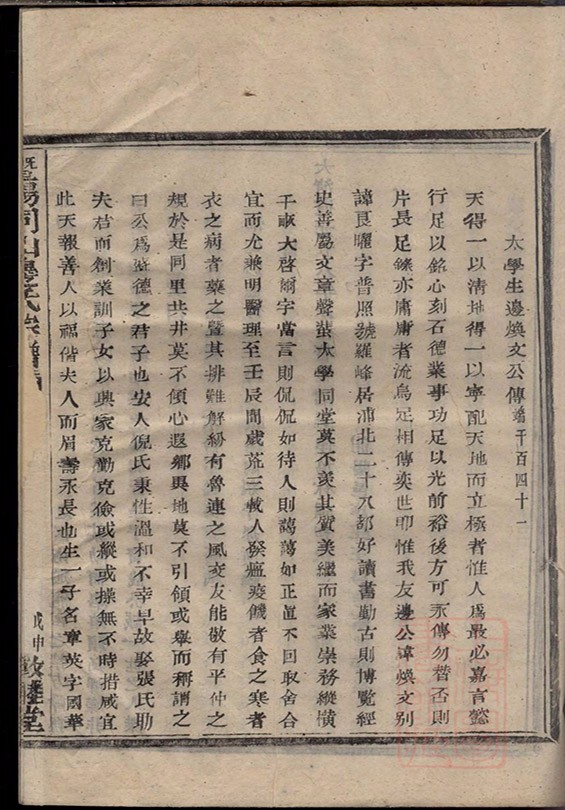 太學生邊煥文公傳 穡千百四十一
天得一以清地得一以寧配天地而立極者惟人爲最必嘉言懿
行足以銘心刻石德業事功足以光前裕後方可永傳勿替否則
片長足錄亦庸庸者流烏足相傳奕世耶惟我友邊公諱煥文別
諱良曜字普照號羅峰居浦北二十六都好讀書勤古則博覽經
史善屬文章聲蜚太學同堂莫不羨其質美繼而家業崇務縱橫
千畝大啓爾宇當言則侃侃如待人則藹藹如正直不回取舍合
宜而尤兼明醫理至壬辰間歲荒三載人發瘟疫饑者食之寒者
衣之病者藥之曁其排難解紛有魯連之風交友能敬有平仲之
規於是同里共井莫不傾心遐鄉異地莫不引領或舉而稱謂之
曰公爲盛德之君子也安人倪氏秉性溫和不幸早故娶張氏助
夫若而創業訓子女以興家克勤克儉或縱或操無不時措咸宜
此天報善人以福偕夫人而眉壽永長也生一子名章英字國華
暨陽同山邊氏宗譜
戊申 敦睦堂